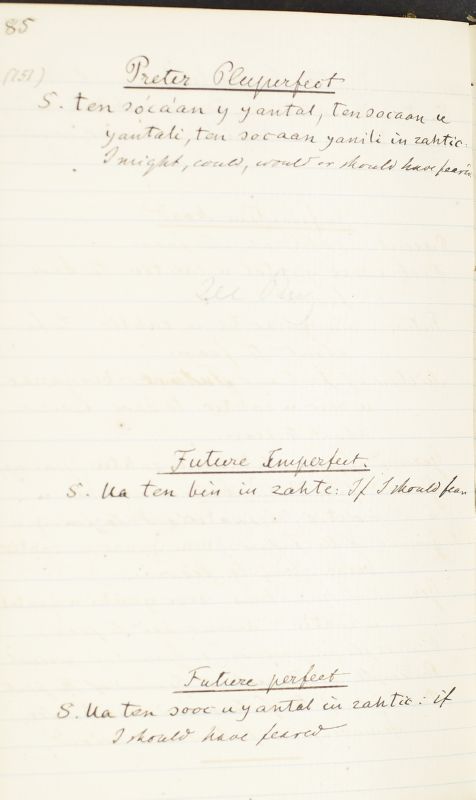 85
(151)
Preter Pluperfect
S. ten sócáan y yantal, ten socaan u
yantali, ten socaan yanili in zahtic:
I might, could, would or should have
Future Imperfect.
S. Ua ten bin in zahte: If I should fear
Future perfect
S. Ua ten sooc u yantal in zahtic: if
I should have feared